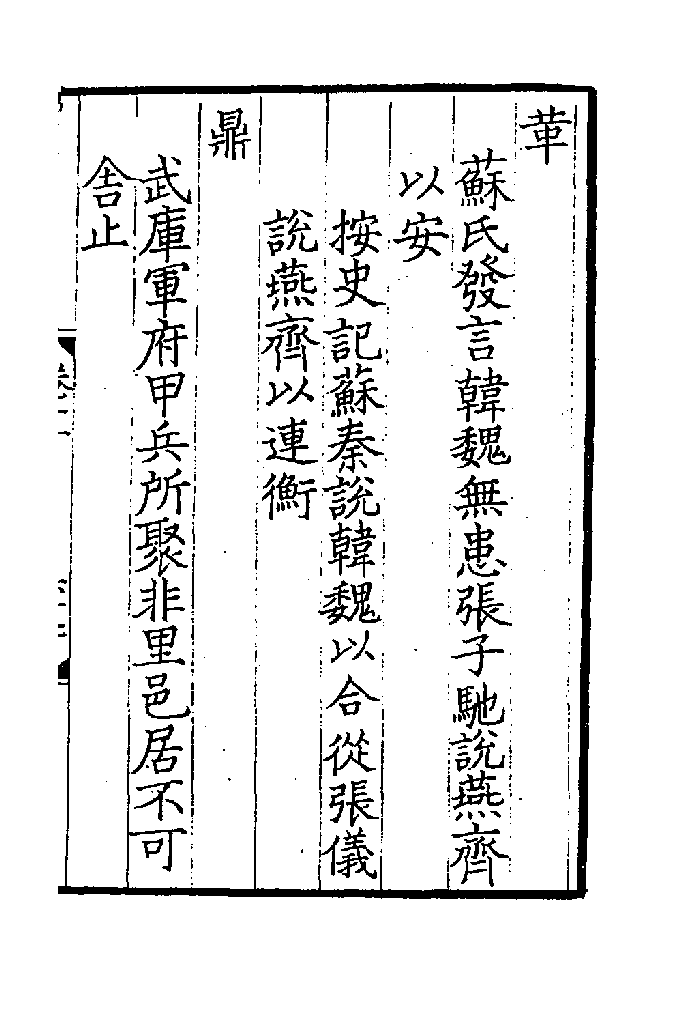 革
蘇氏發言韓魏無患張子馳說燕齊
以安
按史記蘇秦說韓魏以合從張儀
說燕齊以連衡
鼎
武庫軍府甲兵所聚非里邑居不可
舎止